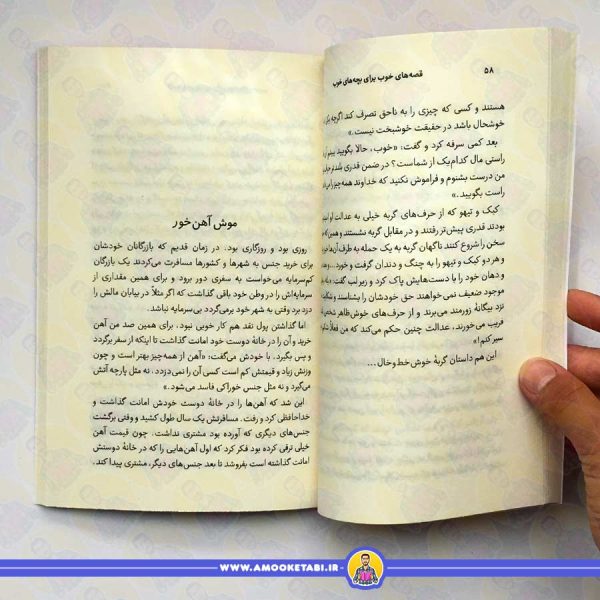 ۵۸
قصه‌های خوب برای بچه‌های خوب
هستند و کسی که چیزی را به ناحق تصرف کند اگرچه
خوشحال باشد در حقیقت خوشبخت نیست.»
بعد کمی سرفه کرد و گفت: «خوب، حالا بگویید ببینم
راستی مال کدام‌یک از شماست؟ در ضمن قدری بلندتر
من درست بشنوم و فراموش نکنید که خداوند همه‌چیز را
راست بگویید.»
کبک و تیهو که از حرف‌های گربه خیلی به عدالت او
بودند قدری پیش‌تر رفتند و در مقابل گربه نشستند و همین
سخن را شروع کنند ناگهان گربه به یک حمله به طرف آن‌ها
و هر دو کبک و تیهو را به چنگ و دندان گرفت و خورد... و
و دهان خود را با دست‌هایش پاک کرد و زیر لب گفت:
موجود ضعیف نمی‌خواهند حق خودشان را بشناسند و
نزد بیگانهٔ زورمند می‌برند و از حرف‌های خوش‌ظاهر
فریب می‌خورند، عدالت چنین حکم می‌کند که من فعلاً
سیر کنم!»
این هم داستان گربهٔ خوش خط و خال...
موش آهن خور
روزی بود و روزگاری بود. در زمان قدیم که بازرگانان خودشان
برای خرید جنس به شهرها و کشورها مسافرت می‌کردند یک بازرگان
کم‌سرمایه می‌خواست به سفری دور برود و برای همین مقداری از
سرمایه‌اش را در وطن خود باقی گذاشت که اگر مثلاً در بیابان مالش را
دزد برد وقتی به شهر خود برمی‌گردد بی‌سرمایه نباشد.
اما گذاشتن پول نقد هم کار خوبی نبود. برای همین صد من آهن
خرید و آن را در خانهٔ دوست خود امانت گذاشت تا اینکه از سفر برگردد
و پس بگیرد. با خودش می‌گفت: «آهن از همه‌چیز بهتر است و چون
وزنش زیاد و قیمتش کم است کسی آن را نمی‌دزدد. نه مثل پارچه آتش
می‌گیرد و نه مثل جنس خوراکی فاسد می‌شود.»
این شد که آهن‌ها را در خانهٔ دوست خودش امانت گذاشت و
خداحافظی کرد و رفت. مسافرتش یک سال طول کشید و وقتی برگشت
جنس‌های دیگری که آورده بود مشتری نداشت. چون قیمت آهن
خیلی ترقی کرده بود فکر کرد که اول آهن‌هایی را که در خانهٔ دوستش
امانت گذاشته است بفروشد تا بعد جنس‌های دیگر، مشتری پیدا کند.
WWW.AMOOKETABI.IR